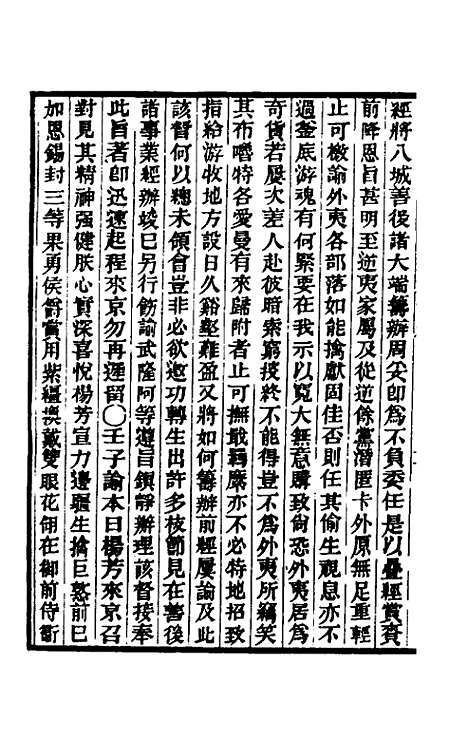 經將八城善後諸大端籌辦周妥卽為不負委任是以疊經賞賚
前降恩旨甚明至逆夷家屬及從逆餘黨潛匿卡外原無足重輕
止可檄諭外夷各部落如能擒獻固佳否則任其偷生視息亦不
過釜底游魂有何緊要在我示以寬大無意購致尙恐外夷居為
奇貨若屢次差人赴彼暗索窮捜終不能得豈不為外夷所竊笑
其布嚕特各愛曼有來歸附者止可撫戢羈縻亦不必特地招致
指給游牧地方設日久谿壑難盈又將如何籌辦前經屢諭及此
該督何以總未領會豈非必欲邀功轉生出許多枝節見在善後
諸事業經辦竣已另行飭諭武隆阿等遵旨鎭靜辦理該督接奉
此旨著卽迅速起程來京勿再遲留〇壬子諭本日楊芳來京召
對見其精神强健朕心實深喜悅楊芳宣力邊疆生擒巨憝前已
加恩錫封三等果勇侯爵賞用紫韁換戴雙眼花翎在御前侍衞